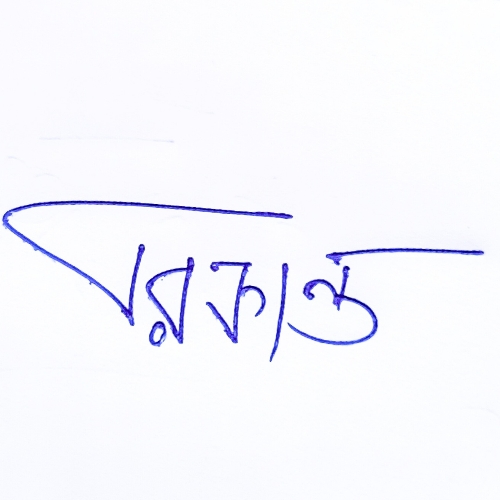 বরকান্ত